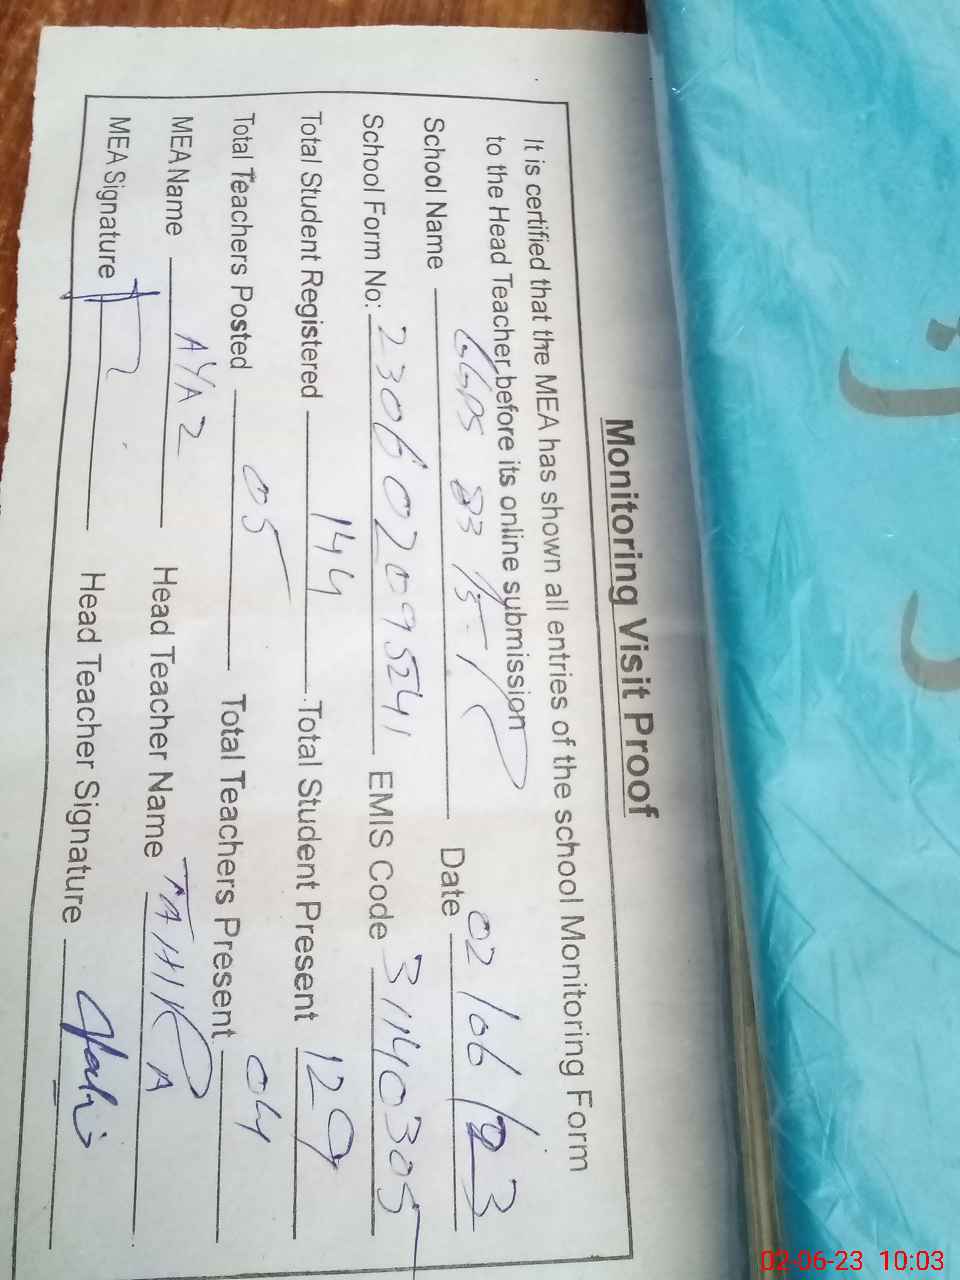 Monitoring Visit Proof
It is certified that the MEA has shown all entries of the school Monitoring Form
to the Head Teacher before its online submission
School Name GGPS 83/15-R Date 02/06/23
School Form No: 2306020095241 EMIS Code 31140305
Total Student Registered 144 Total Student Present 129
Total Teachers Posted 05 Total Teachers Present 04
MEA Name AYAZ Head Teacher Name TAHIRA
MEA Signature Head Teacher Signature
02-06-23 10:03